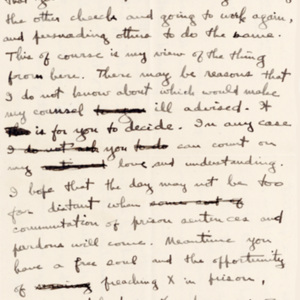 the other cheek and going to work again,
and persuading others to do the same.
This of course is my view of the thing
from here. There may be reasons that
I do not know about which would make
my counsel ill advised. It
is for you to decide. In any case
I do not ask you to do can count on
my love and understanding.
I hope that the day may not be too
far distant when some out of
commutation of prison sentences and
pardons will come. Meantime you
have a free soul and the opportunity
of preaching X in prison,